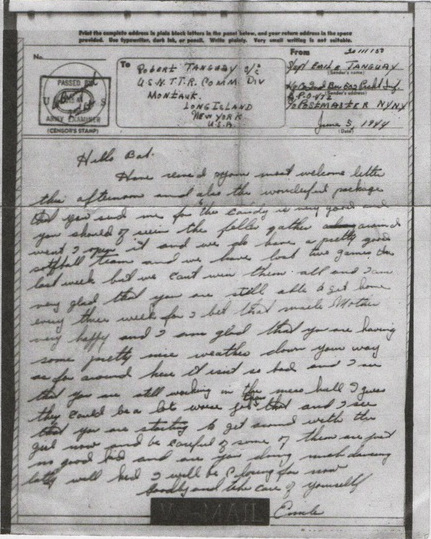 Print the complete address in plain block letters in the panel below, and your return address in the space
provided. Use typewriter, dark ink, or pencil. Write plainly. Very small writing is not suitable.
No.
PASSED BY
U S
ARMY EXAMINER
(CENSOR'S STAMP)
To
ROBERT TANGUAY S/2c
U.S.N.T.T.R. COMM DIV
MONTAUK.
LONG ISLAND
NEW YORK
U.S.A.
From
20111157
TANGUAY
(Sender's name)
(Sender's address)
POSTMASTER NYNY
June 3, 1944
(Date)
Hello Bob.
Have received your most welcome letter
this afternoon and also the wonderful package
that you sent me for the candy is very good and
you should of seen the fellas gather around
went I open it and we do have a pretty good
softball team and we have lost two games
last week but we cant win them all and I am
very glad that you are still able to get home
every three week for I bet that made Mother
very happy and I am glad that you are having
some pretty nice weather down your way
as for around here it isnt so bad and I see
that you are still working in the mess hall I guess
they could be a lot worse than that and I see
that you are starting to get around with the
girl now and be careful of some of them are just
no good kid and are you doing much dancing
lately well kid I will be closing for now
Goodby and take care of yourself
Emile
V-MAIL